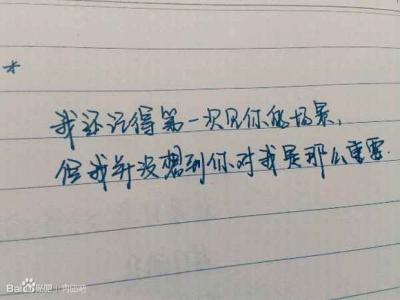 *
我还记得第一次见你的场景,
但我并没想到你对我是那么重要.
Bai 贴吧 | 青茴吧